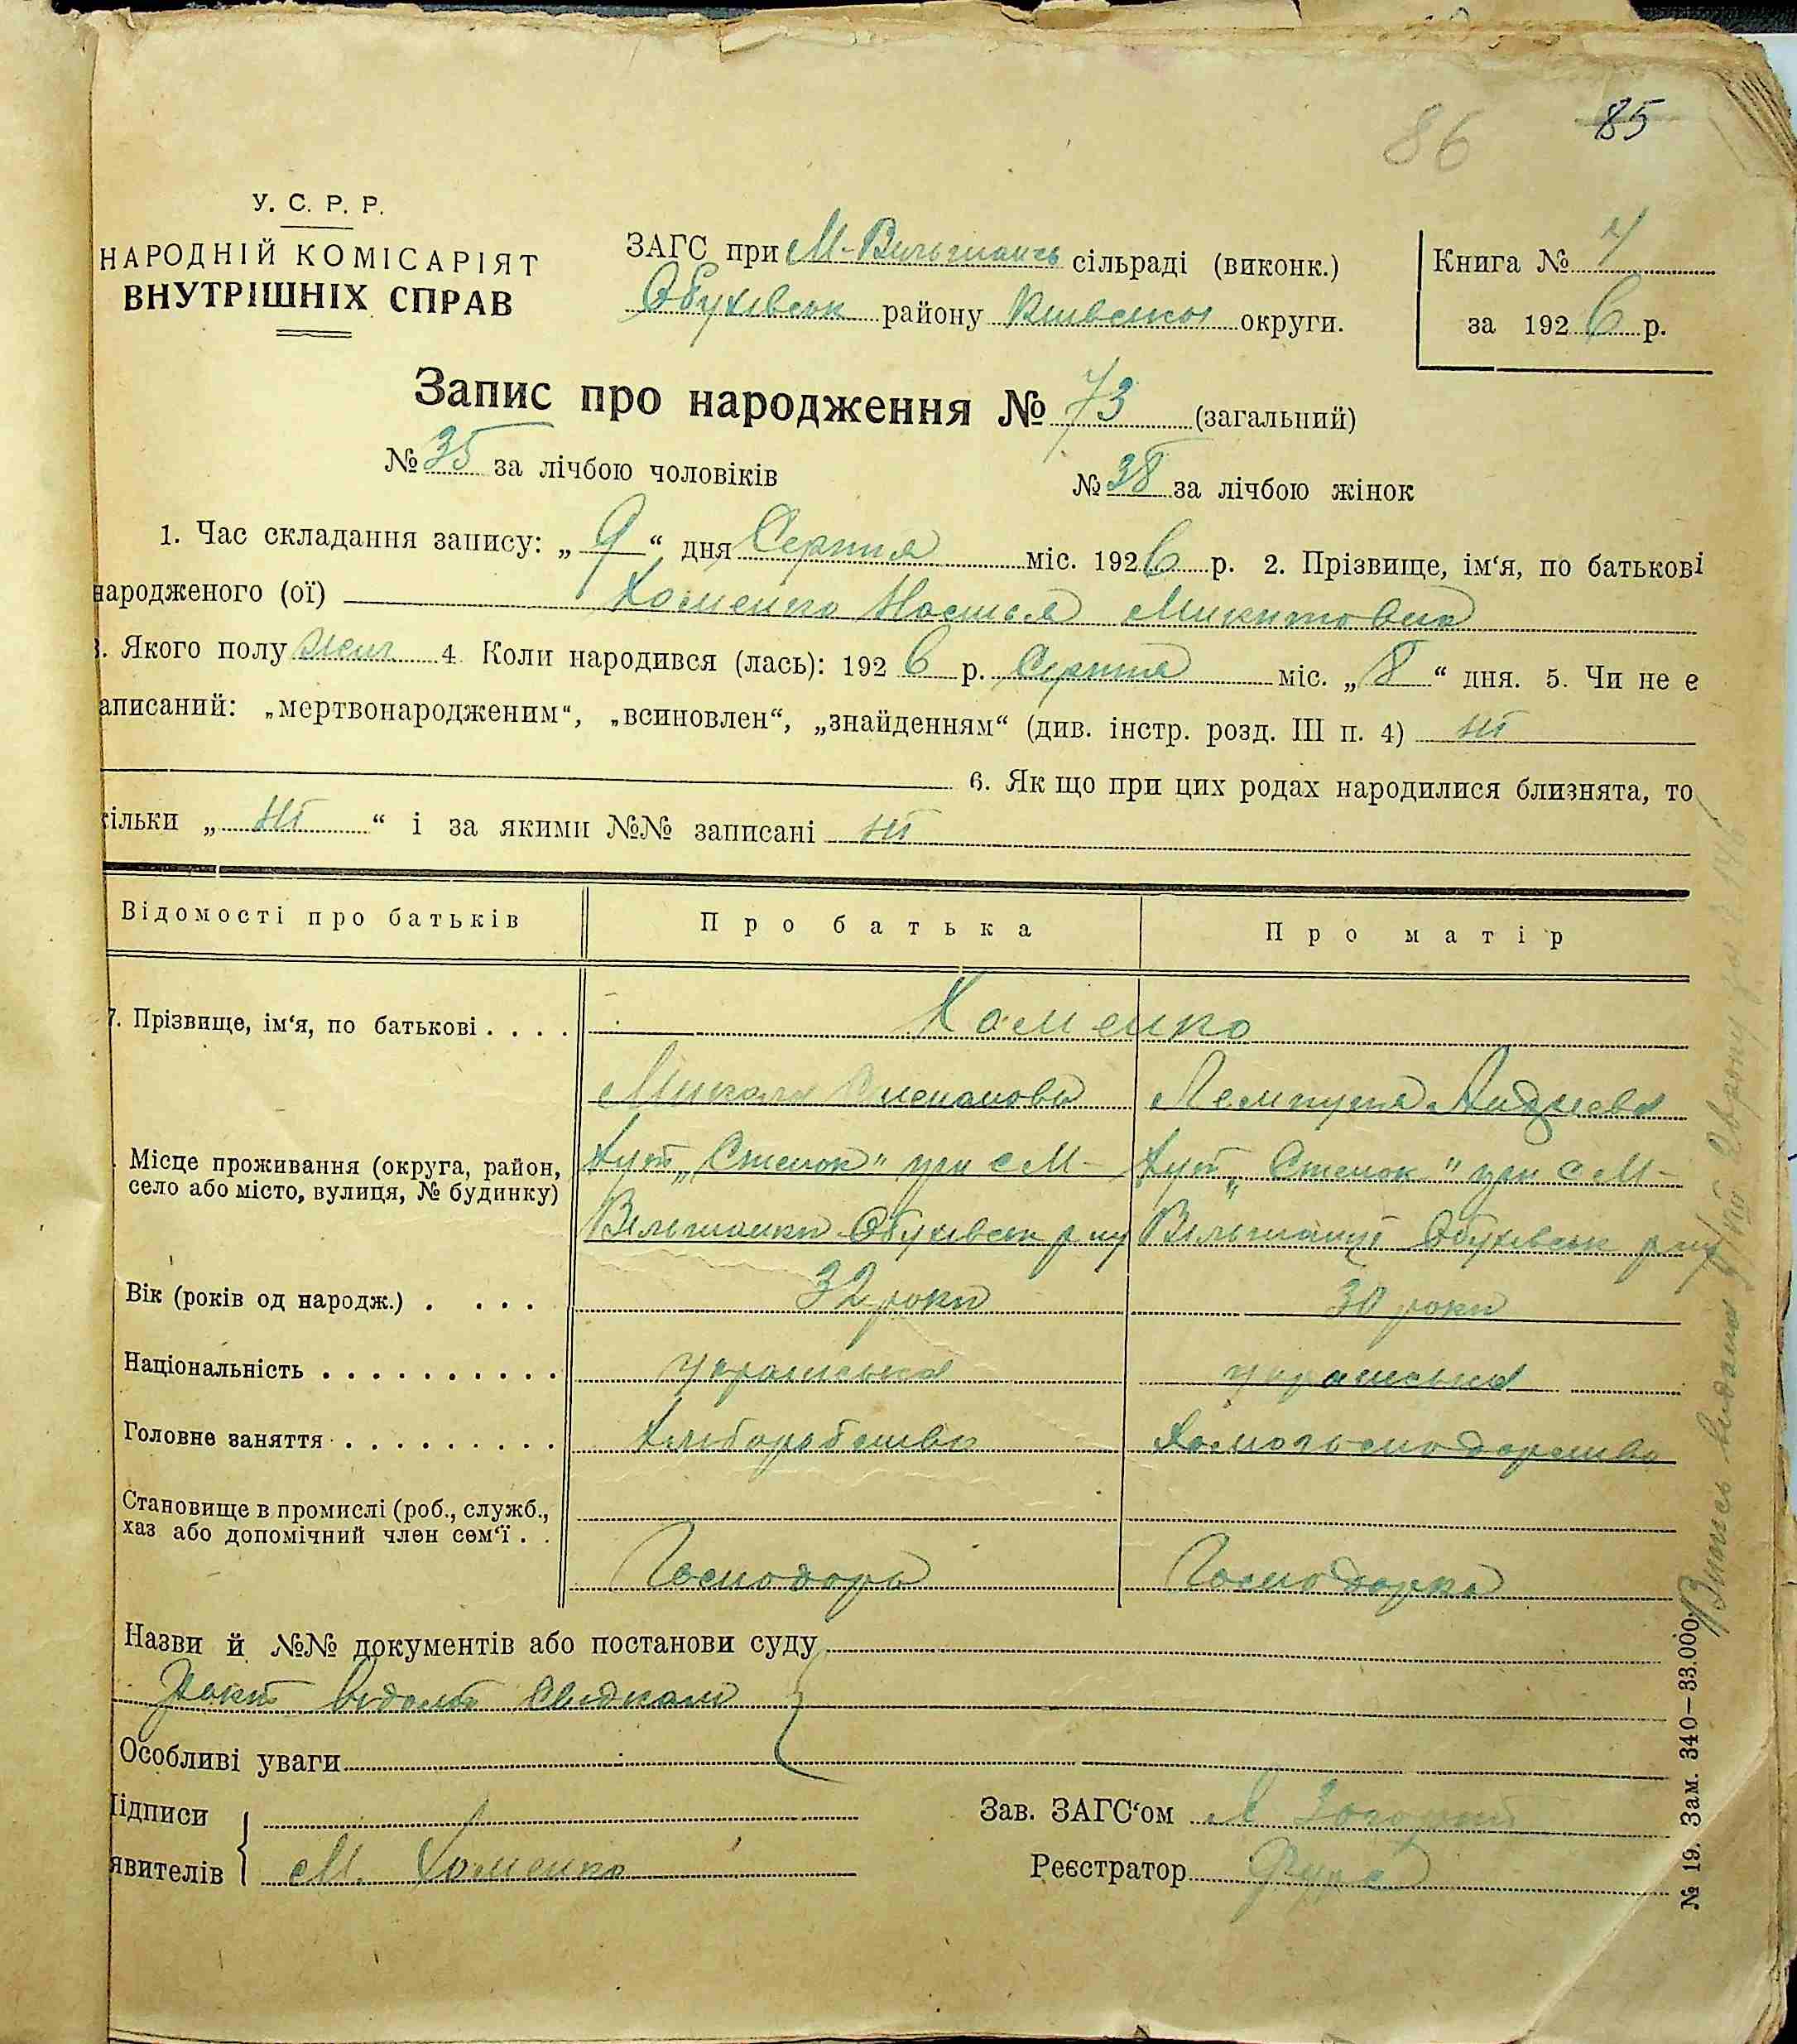 86 85
У. С. Р. Р.
НАРОДНІЙ КОМІСАРІЯТ
ВНУТРІШНІХ СПРАВ
ЗАГС при М-Вильшансь сільраді (виконк.)
Обухівськ району Київської округи.
Книга №
за 1926 р.
Запис про народження № 73 (загальний)
№ 35 за лічбою чоловіків
№ 38 за лічбою жінок
1. Час складання запису: „ 9 “ дня Серпня міс. 1926 р. 2. Прізвище, ім‘я, по батькові
народженого (ої) Хоменко Настья Микитовна
. Якого полу жен 4. Коли народився (лась): 1926 р. Серпня міс. „ 8 “ дня. 5. Чи не є
аписаний: „мертвонародженим“, „всиновлен“, „знайденням“ (див. інстр. розд. III п. 4) ні
6. Як що при цих родах народилися близнята, то
кільки „ ні “ і за якими №№ записані ні
Відомості про батьків Про батька Про матір
7. Прізвище, ім‘я, по батькові . . . . Хоменко
Андреева
Місце проживання (округа, район,
село або місто, вулиця, № будинку)
Хут „Стенок" при с М- Хут „Стенок" при с М-
Вільшанки Обухівськ р ну Вільшанці Обухівськ р ну
Вік (років од народж.) . . . . 32 роки 30 роки
Національність . . . . . . . . . . українська українська
Головне заняття . . . . . . . . . Хліборобство Домогосподарство
Становище в промислі (роб., служб.,
хаз або допомічний член сем‘ї . .
Господарь Господарка
Назви й №№ документів або постанови суду
Факт відомий свидкам
Особливі уваги
Підписи
явителів М. Хоменко
Зав. ЗАГС‘ом
Реєстратор
№ 19. Зам. 340—33.000.
Выпись выдана